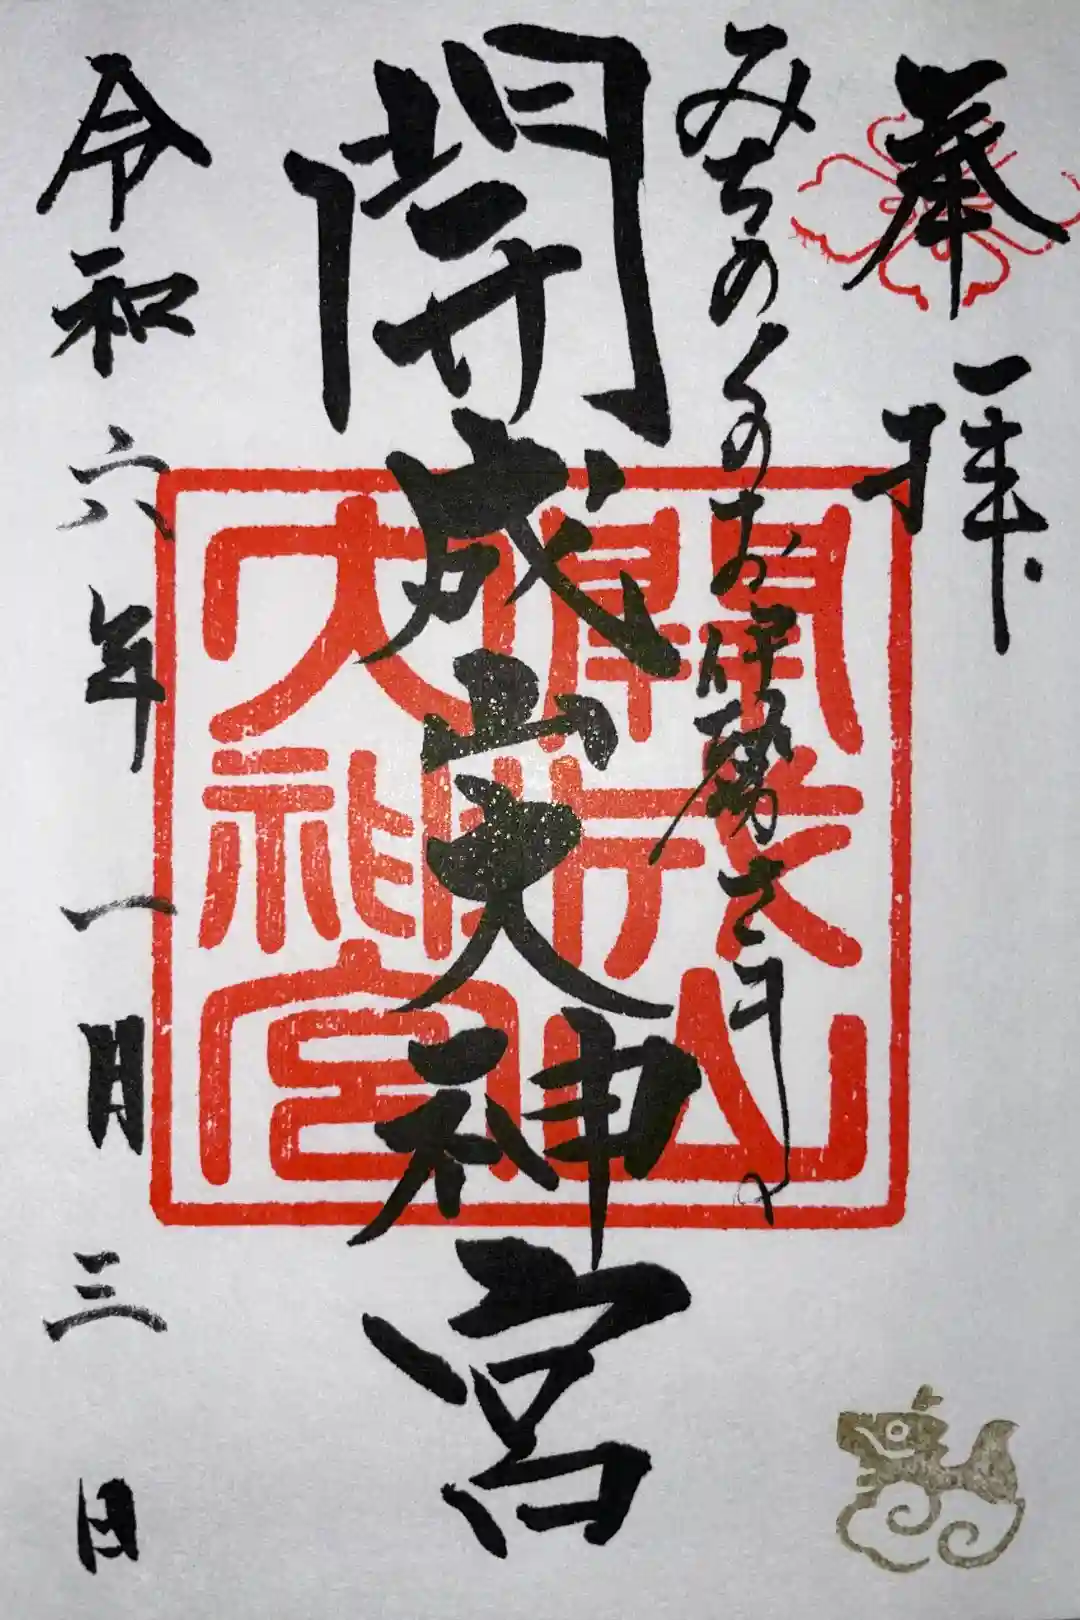 奉拝
みちのくのお伊勢さま
開成山大神宮
令和六年一月三日
開成山
大神宮